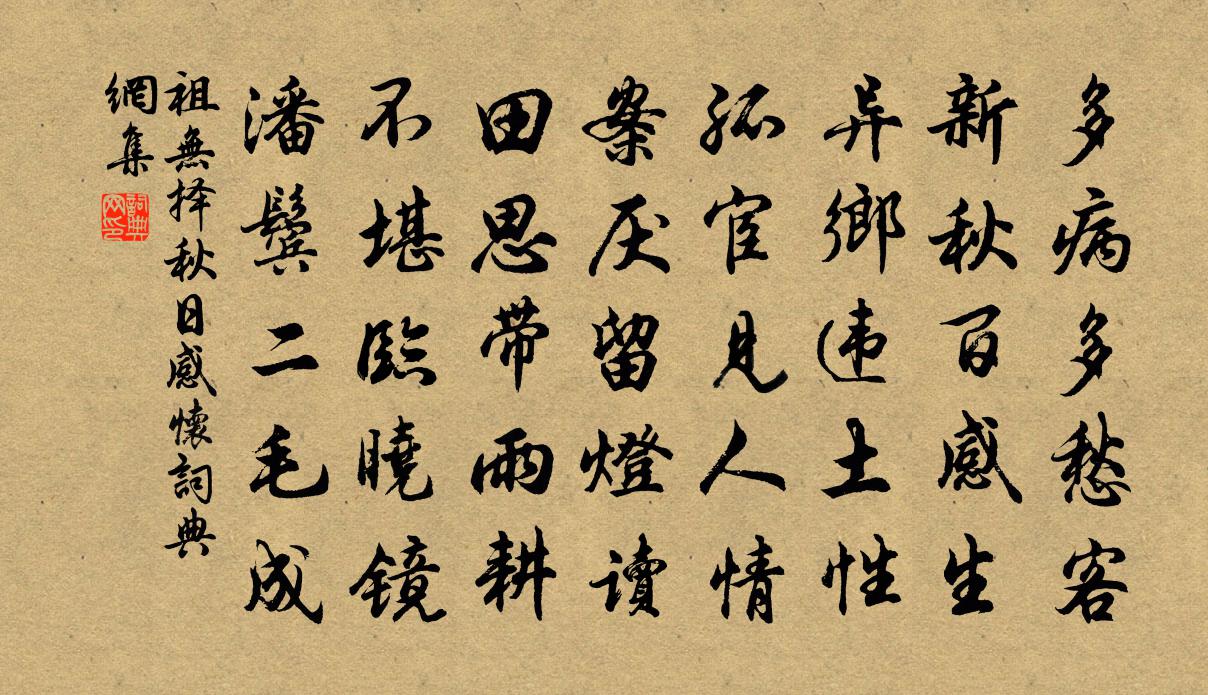 多病多愁客
新秋百感生
异鄉违土性
孤宦見人情
案厌留燈读
田思带雨耕
不堪臨曉镜
潘鬓二毛成
祖無择秋日感懷詞典
網集
詞典
网印